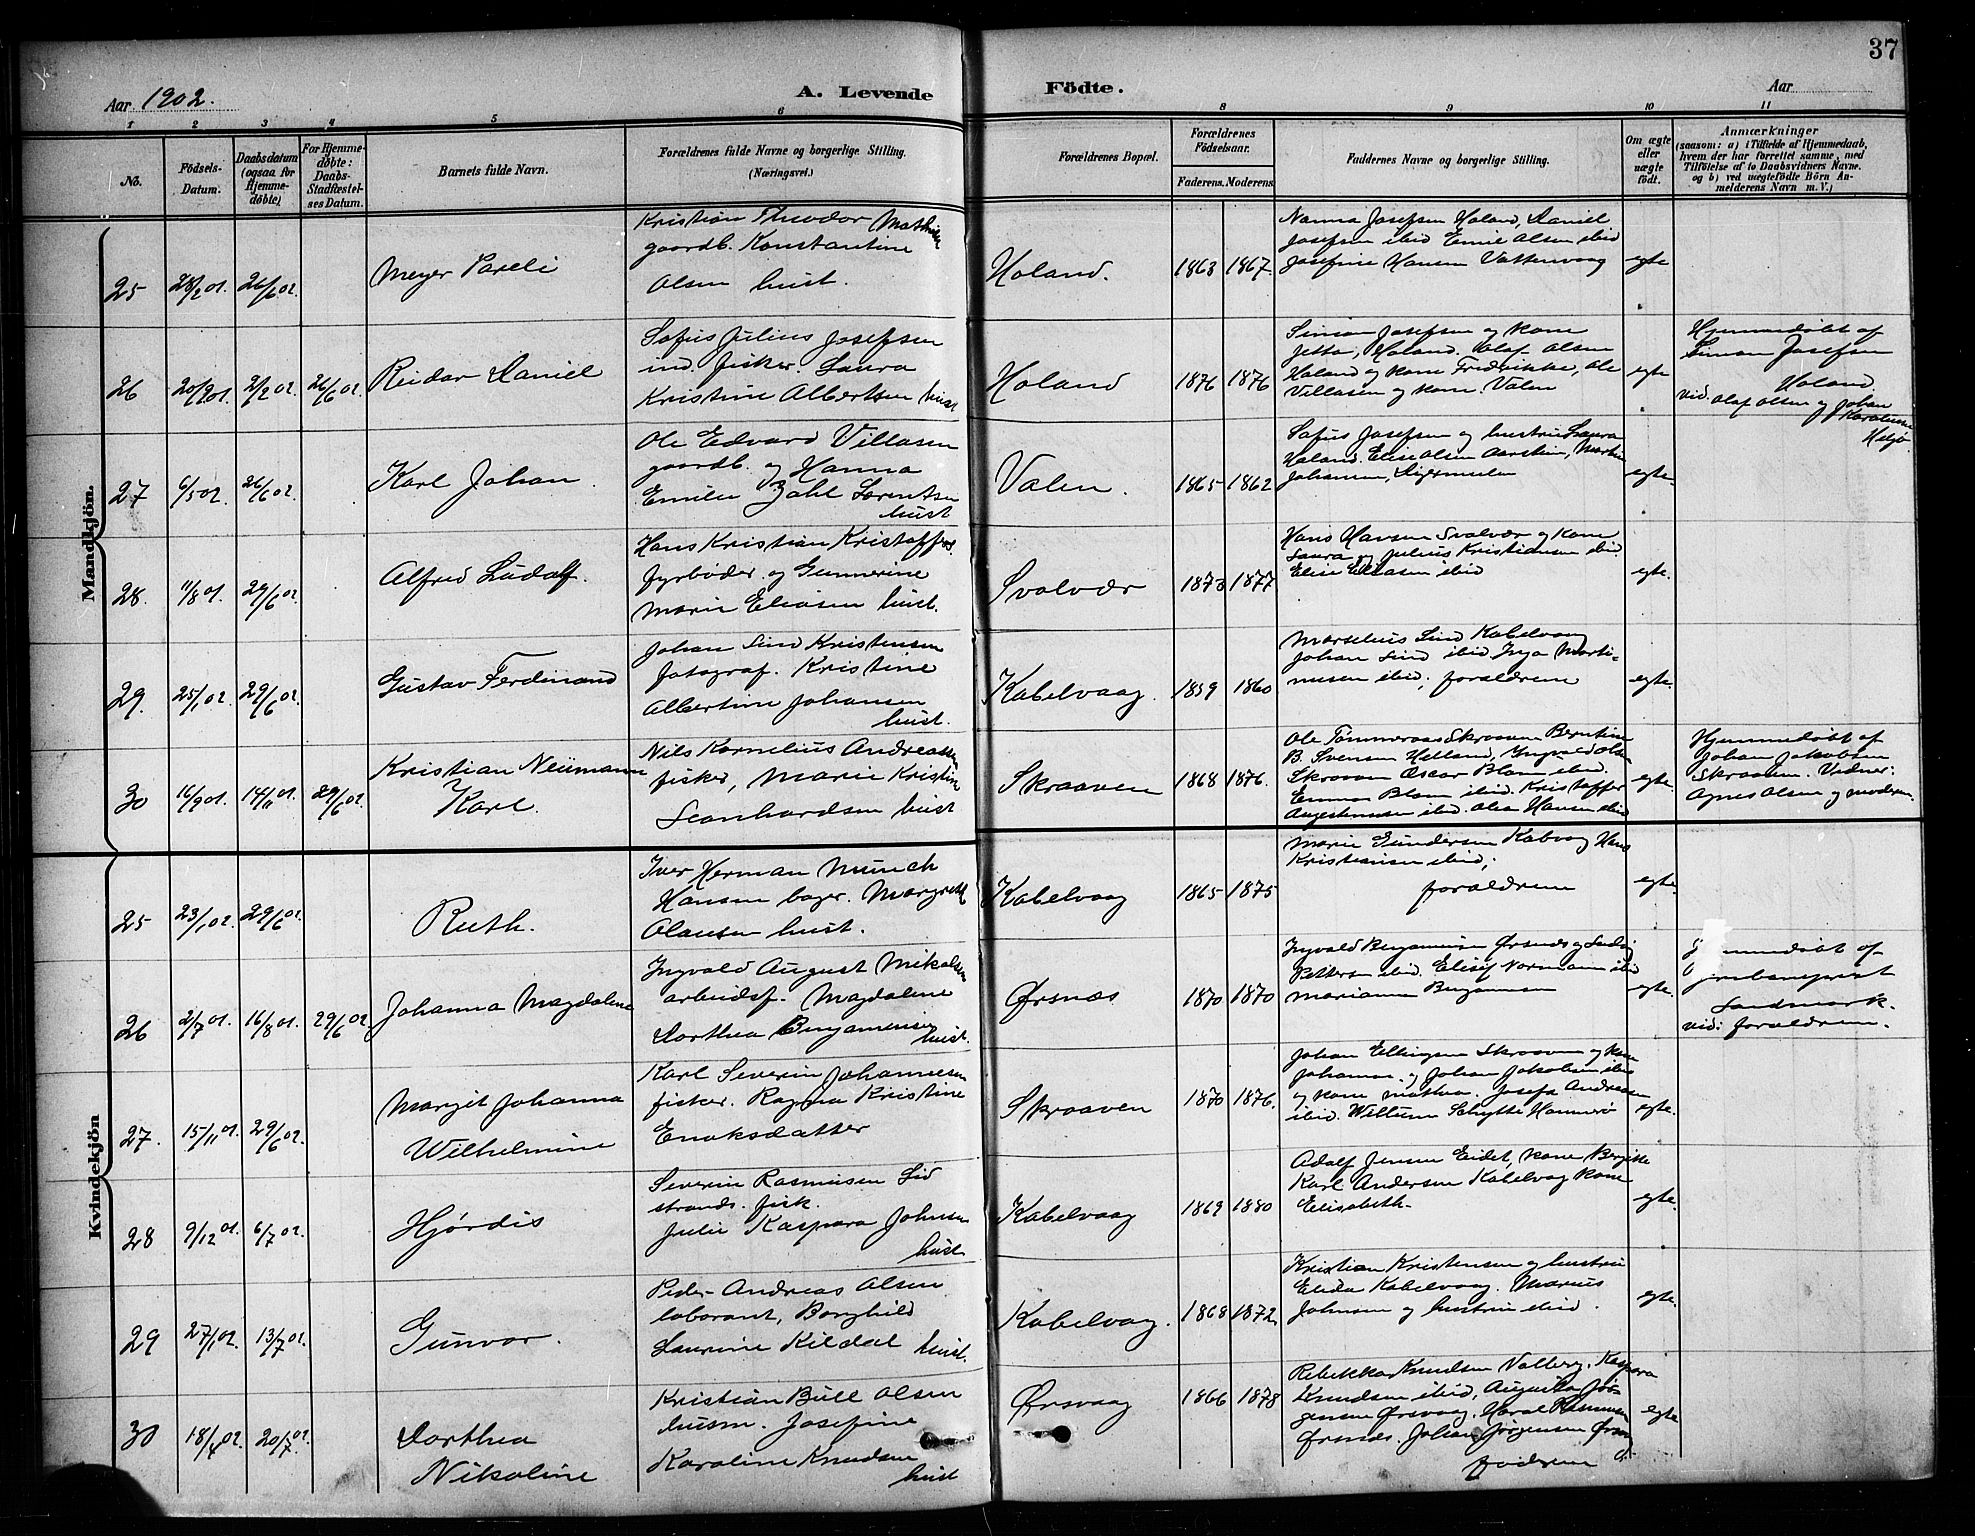 37
Aar 1902.
A. Levende Födte.
Aar
1 2 3 4 5 6 8 9 10 11
No.
Födsels-Datum.
Daabsdatum (ogsaa for Hjemmedöbte)
For Hjemmedöbte: Daabs-Stadfæstelses Datum.
Barnets fulde Navn.
Forældrenes fulde Navne og borgerlige Stilling. (Næringsvei.)
Forældrenes Bopæl.
Forældrenes Födselsaar.
Faderens. Moderens.
Faddernes Navne og borgerlige Stilling.
Om ægte eller uægte födt.
Anmærkninger
(saasom: a) i Tilfælde af Hjemmedaab, hvem der har forrettet samme, med Tilföielse af to Daabsvidners Navne. og b) ved uægtefödte Börn Anmelderens Navn m. V.)
Mandkjön.
25 28/2 01. 26/6 02. Meyer Pareli
Kristian Theodor
gaardb. Konstantine
Olsen hust.
Holand. 1863 1867
Nanna Josefsen Holand, Daniel
Josefsen ibid Emil Olsen ibid
Josefine Hansen Vattervaag
egte
26 20/9 01. 2/2 02. 26/6 02. Reidar Daniel
Sofus Julius Josefsen
ind. fisker. Laura
Kristine Albertsen hust
Holand 1876 1876
Simon Josefsen og kone
Jetta, Holand. Olaf Olsen
Holand og kone Fredrikke, Ole
Villasen og kone. Valen
egte
Hjemmedøbt af
Simon Josefsen
Holand.
vid. Olaf Olsen og Johan
27 6/5 02. 26/6 02. Karl Johan.
Ole Edvard Villasen
gaardb. og Hanna
Emilie Zahl Lorentsen
hust
Valen. 1865 1862
Sofus Josefsen og hustru Laura
Holand. Elise Olsen
Johansen, Digermulen
egte.
28. 11/8 01. 29/6 02. Alfred Ludolf.
Hans Kristian
fyrbøder. og Gunnerine
Marie Eliasen hust.
Svolvær 1873 1877
Hans Hansen Svolvær og kone
Laura og Julius Kristiansen ibid
Elise Eliasen ibid
egte.
29. 25/1 02. 29/6 02. Gustav Ferdinand
Johan Lind Kristensen
fotograf. Kristine
Albertine Johansen
hust.
Kabelvaag. 1859 1860
Marselius Lind Kabelvaag
Johan Lind ibid Inga Marti-
nusen ibid; forældrene
egte.
30 16/9 01. 14/11 01. 29/6 02. Kristian Neumann
Karl.
Nils Kornelius Andreassen
fisker, Marie Kristine
Leonhardsen hust
Skraaven 1868 1876.
Ole Tømmeraas Skraaven Berntine
B. Svensen Helland, Ingvald Olsen
Skroven Oscar Blom ibid.
Emma Blom ibid. Kristoffer
Augustinusen ibid. Olea Hansen ibid
egte.
Hjemmedøbt af
Johan Jakobsen
Skraaven. Vidner:
Agnes Olsen og moderen.
Kvindekjön
25 23/1 02. 29/6 02. Ruth.
Iver Herman Munch
Hansen bager. Margrethe
Olausen hust.
Kabelvaag 1865 1875
Marie Gundersen Kabvaag Hans
Kristiansen ibid;
forældrene
egte.
26 2/7 01. 16/8 01. 29/6 02. Johanna Magdalene
Ingvald August Nikolsen
arbeidsf. Magdalene
Dorthea Benjaminsen
hust.
Ørsnæs 1870 1870
Ingvald Benjaminsen Ørsnæs og
Pettersen ibid. Elisif Normann ibid
Marianne Benjaminsen
egte.
Landmark.
vid: forældrene.
27. 15/11 01. 29/6 02. Margit Johanna
Wilhelmine
Karl Severin Johannesen
fisker. Ragna Kristine
Enoksdatter
Skraaven 1870 1876.
Johan Ellingsen Skraaven og kone
Johanna og Johan Jakobsen ibid
og kone Mathea. Josefa Andreasen
ibid. Willum Schytte Hammerø
egte.
28 9/12 01. 6/7 02. Hjørdis
Severin Rasmusen Lid
strands. fisk.
Julie Kaspara Johnsen
hust
Kabelvaag 1869 1880
Adolf Jensen Eidet, kone Bergitte
Karl Andersen Kabelvag kone
Elisabeth.
egte.
29 27/1 02. 13/7 02. Gunvor.
Peder Andreas Olsen
laborant, Borghild
Laurine Kildal hust.
Kabelvaag. 1868 1872
Kristian Kristensen og hustru
Elida Kabelvaag. Marius
Johnsen og hustru ibid.
egte.
30 18/4 02. 20/7 02. Dorthea
Nikoline
Kristian Bull Olsen
husm. Josefine
Karoline Knudsen
hust
Ørsvaag 1866 1878
Rebekka Knudsen Valberg. Kaspara
Knudsen ibid, Augusta Jør-
gensen Ørsvaag, Haral Rasmusen
Ørsnæs. Johan Jørgensen
faderen
egte